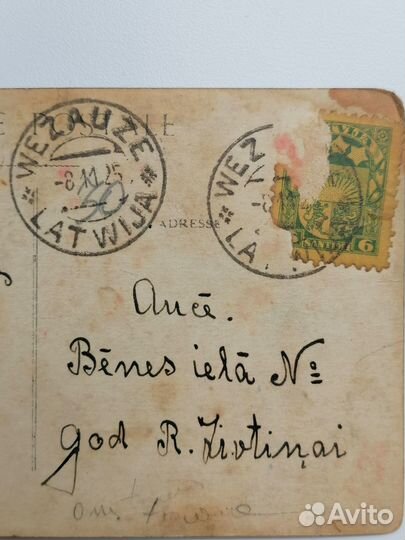 WEZAUZE
-8.XI.25
LATWIJA
WEZ
LA
ADRESSE
LATVIJA
6
Aucē.
Bēnes ielā №
god R. Zivtiņai
Avito